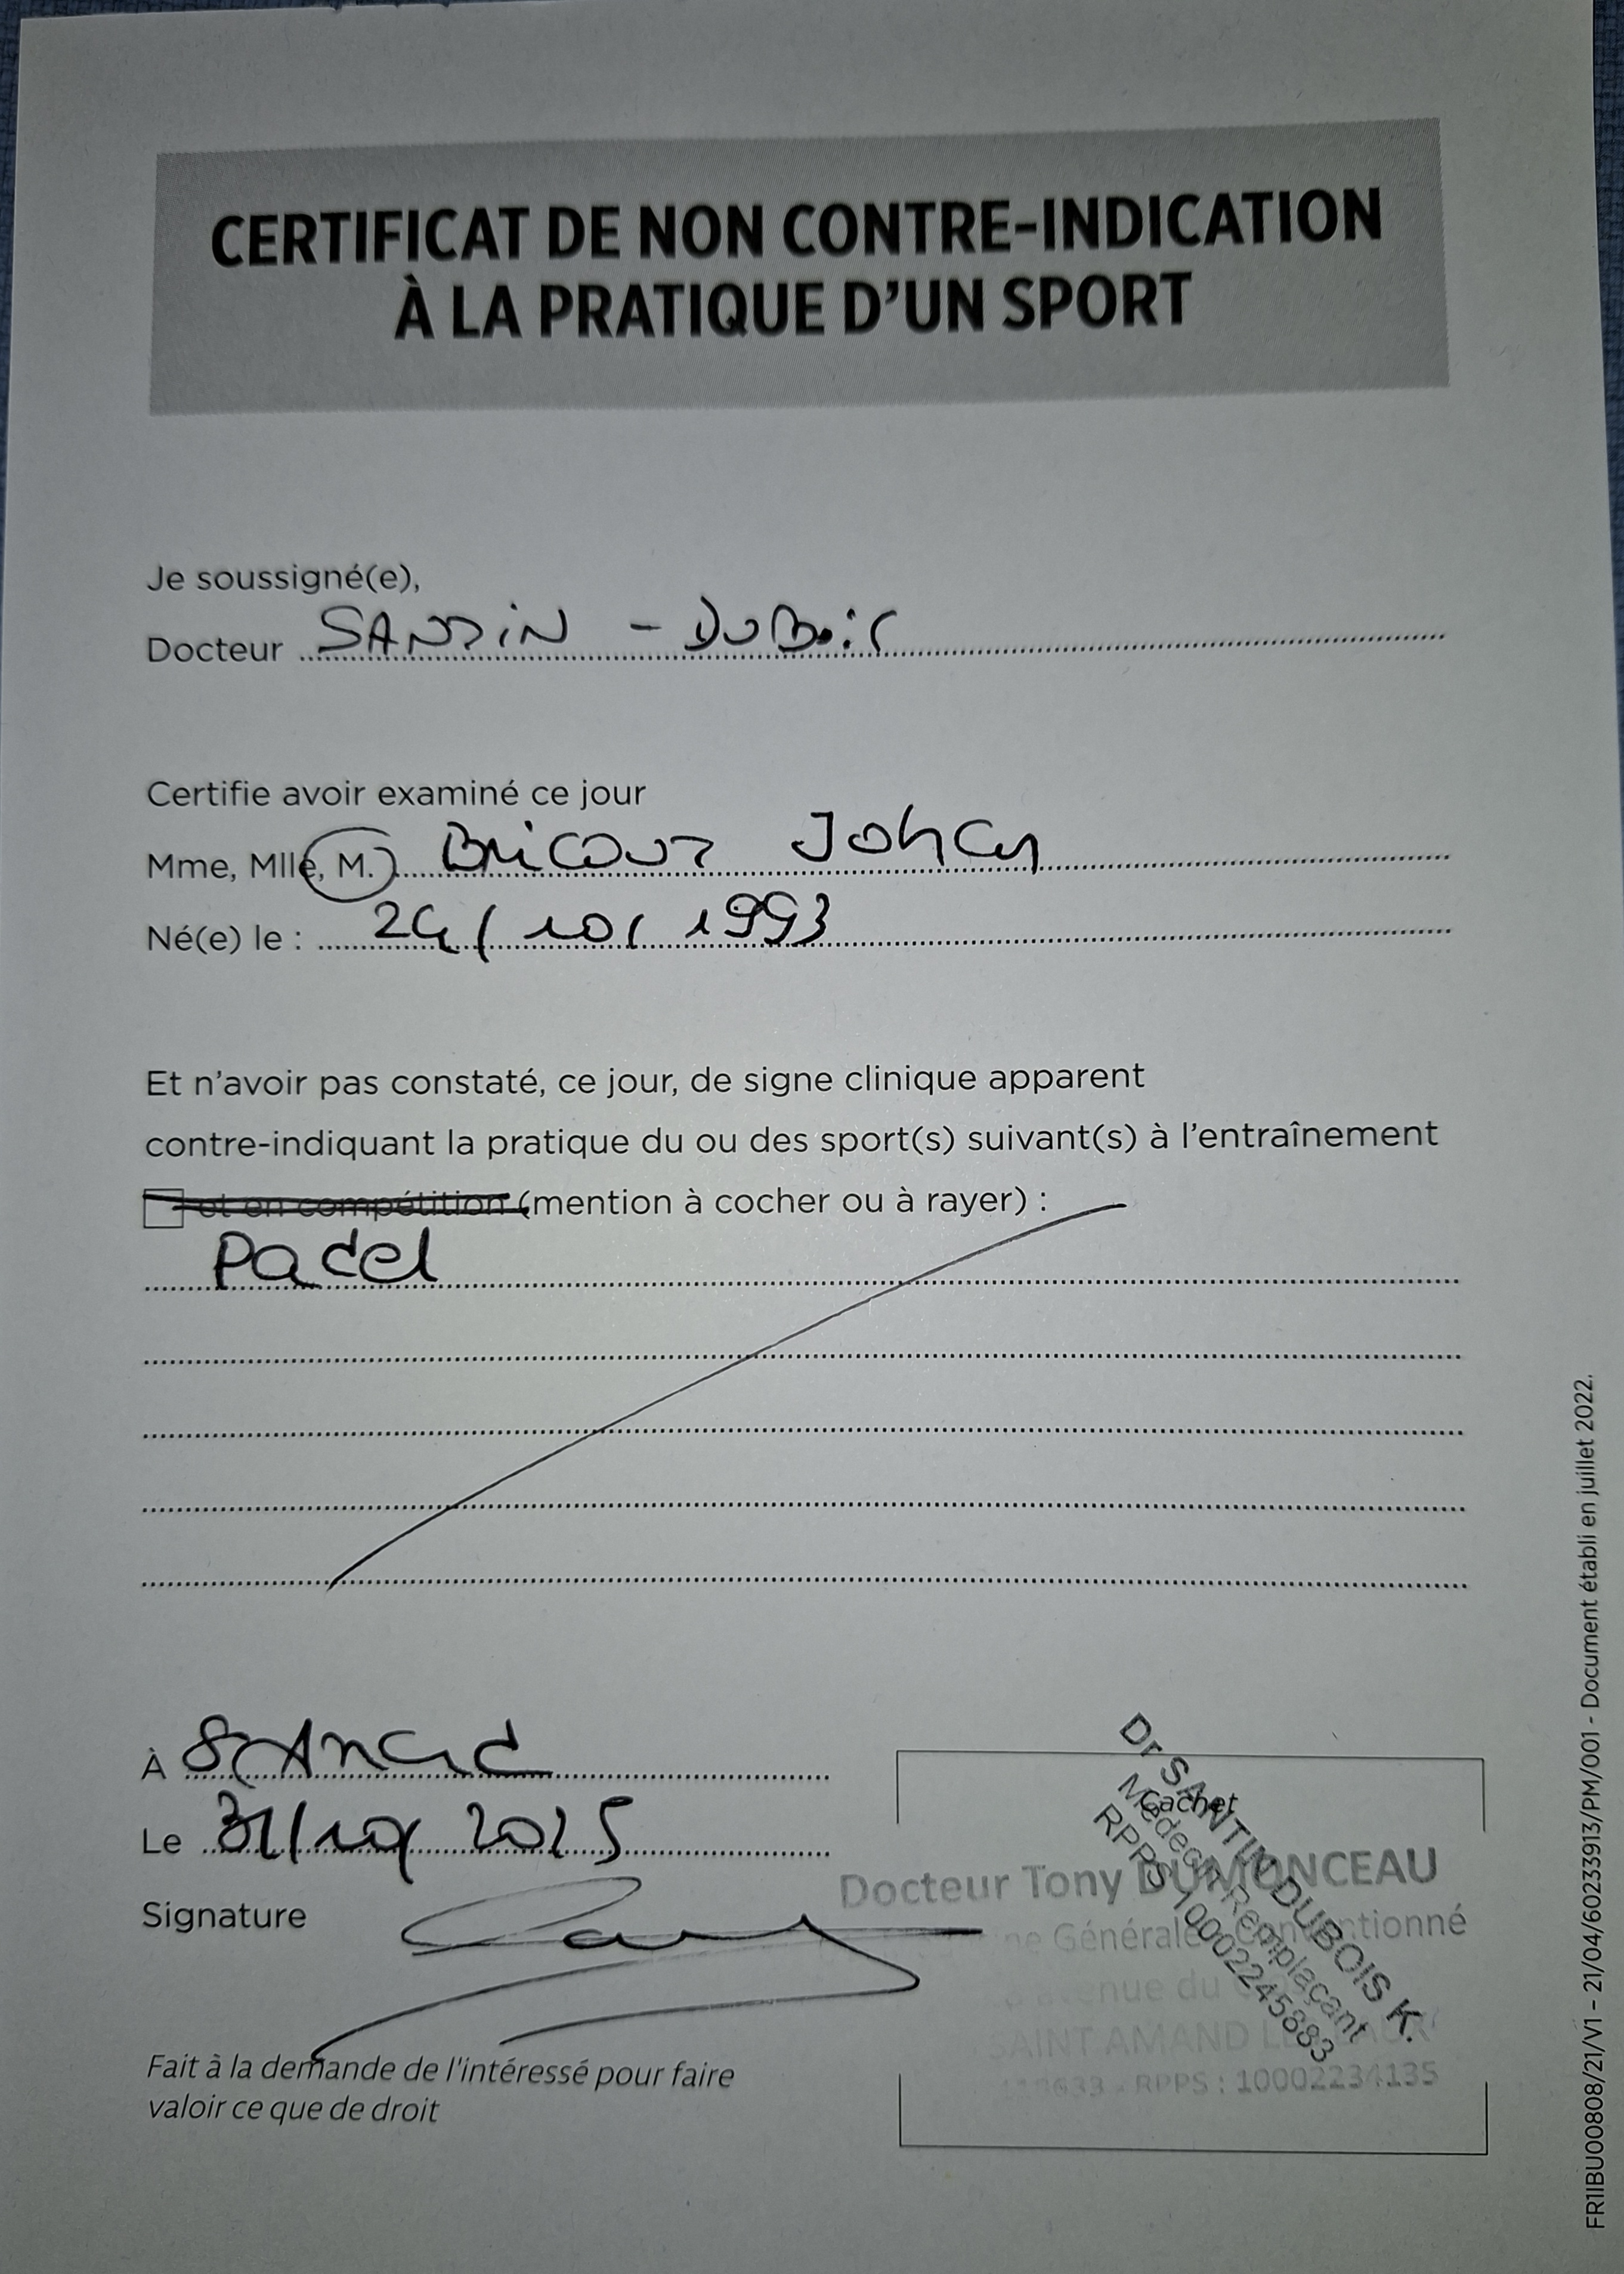 CERTIFICAT DE NON CONTRE-INDICATION
À LA PRATIQUE D'UN SPORT
Je soussigné(e),
Docteur SANTIN - DUBois
Certifie avoir examiné ce jour
Mme, Mlle, M. BRICOUT Johan
Né(e) le : 24/10/1993
Et n'avoir pas constaté, ce jour, de signe clinique apparent
contre-indiquant la pratique du ou des sport(s) suivant(s) à l'entraînement
et en compétition (mention à cocher ou à rayer) :
Padel
À St Amand
Le 31/10/2025
Signature
Fait à la demande de l'intéressé pour faire
valoir ce que de droit
Cachet
Dr SANTIN DUBOIS K.
Médecin Remplaçant
RPPS 10002245883
Docteur Tony DUMONCEAU
Générale
avenue du
SAINT AMAND
RPPS : 10002234135
FR11BU00808/21/V1 – 21/04/60233913/PM/001 - Document établi en juillet 2022.